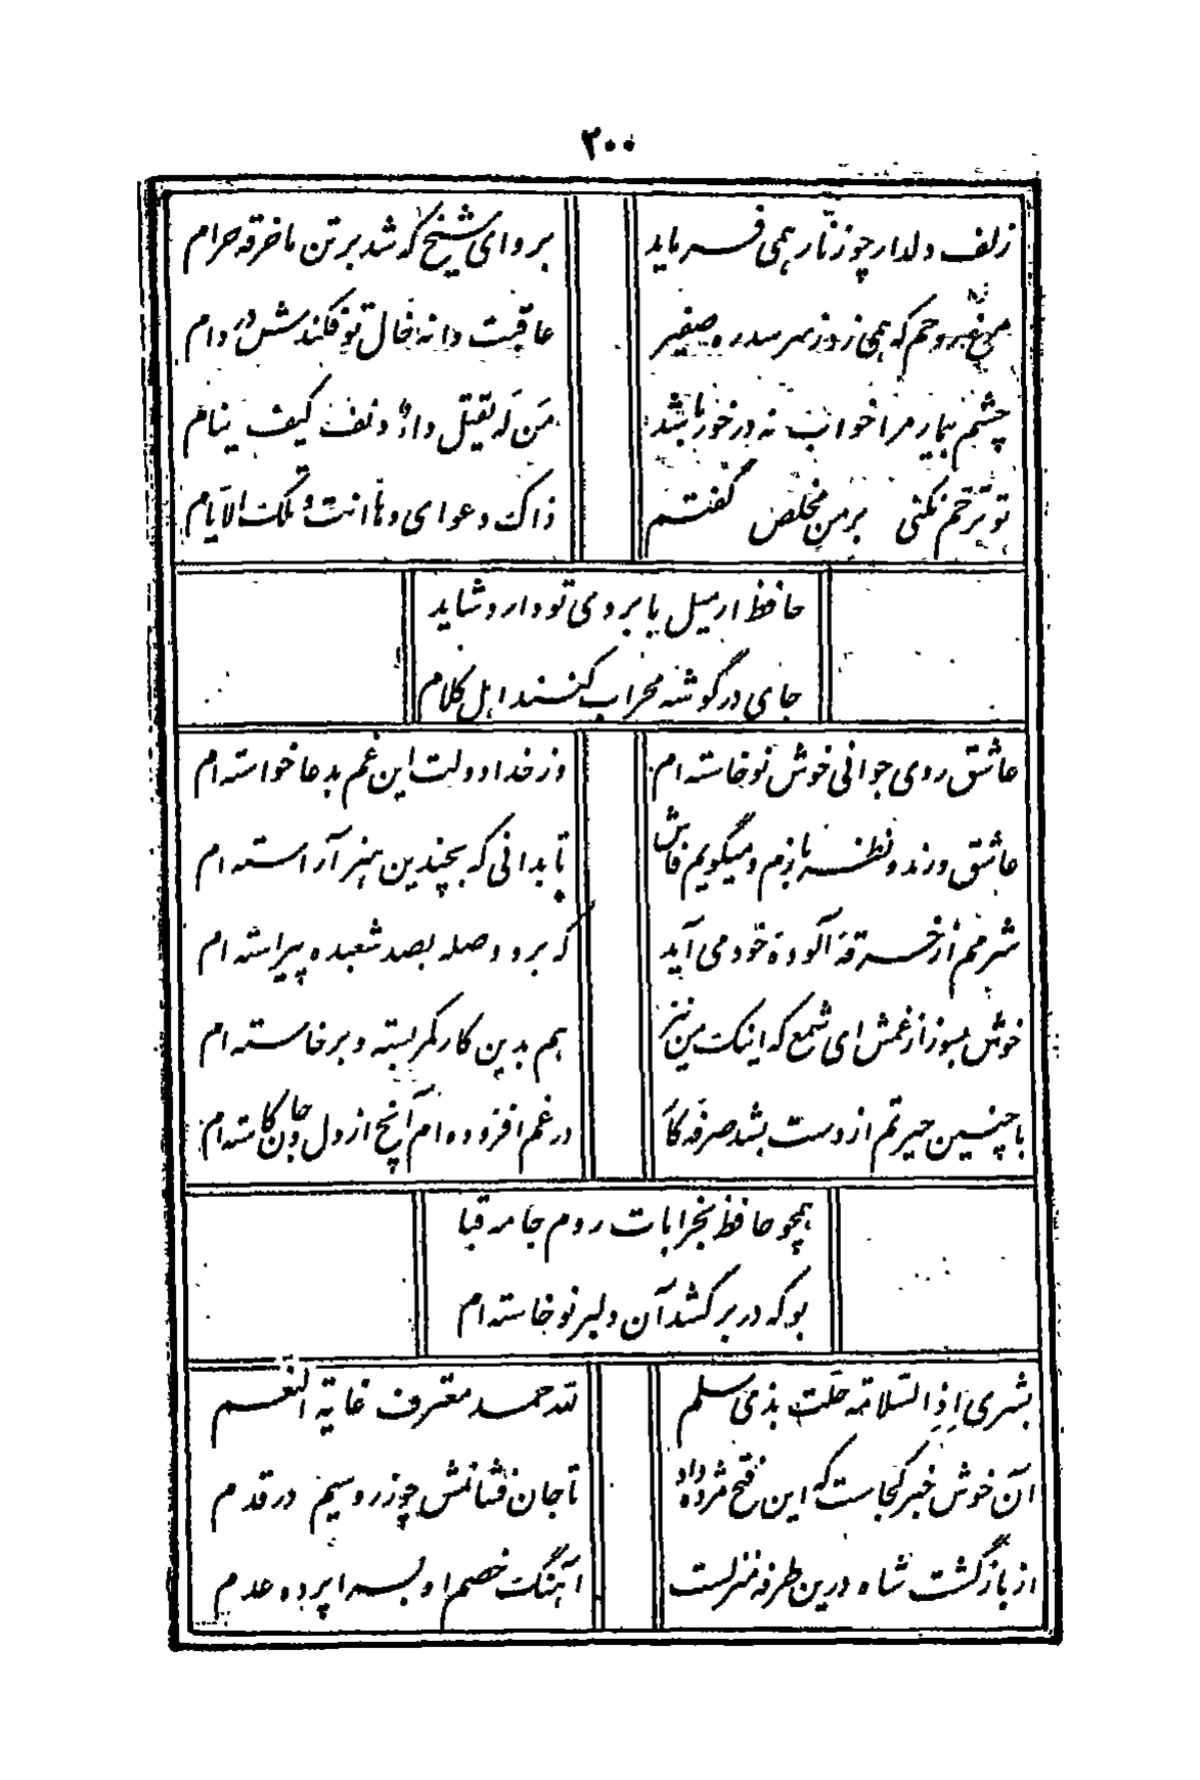 ۲۰۰
زلف دلدار چو زنار همی فرماید
برو ای شیخ که شد بر تن ما خرقه حرام
مرغ روحم که همی زد ز سر سدره صفیر
عاقبت دانه خال تو فکندش در دام
چشم بیمار مرا خواب نه در خور باشد
من له یقتل داء دنف کیف ینام
تو ترحم نکنی بر من مخلص گفتم
ذاک دعوای وها انت و تلک الایام
حافظ ار میل بابروی تو دارد شاید
جای در گوشه محراب کنند اهل کلام
عاشق روی جوانی خوش نوخاسته ام
وز خدا دولت این غم بدعا خواسته ام
عاشق و رند و نظر بازم و میگویم فاش
تا بدانی که بچندین هنر آراسته ام
شرمم از خرقه آلوده خود می آید
که برو وصله بصد شعبده پیراسته ام
خوش بسوز از غمش ای شمع که اینک من نیز
هم بدین کار کمر بسته و برخاسته ام
با چنین حیرتم از دست بشد صرفه کار
در غم افزوده ام آنچ از دل و جان کاسته ام
همچو حافظ بخرابات روم جامه قبا
بو که در بر کشد آن دلبر نوخاسته ام
بشری اِذِ السّلامة حلّت بذی سلم
لله حمد معترف غایة النعم
آن خوش خبر کجاست که این فتح مژده داد
تا جان فشانمش چو زر و سیم در قدم
از بازگشت شاه درین طرفه منزلست
آهنگ خصم او بسراپرده عدم